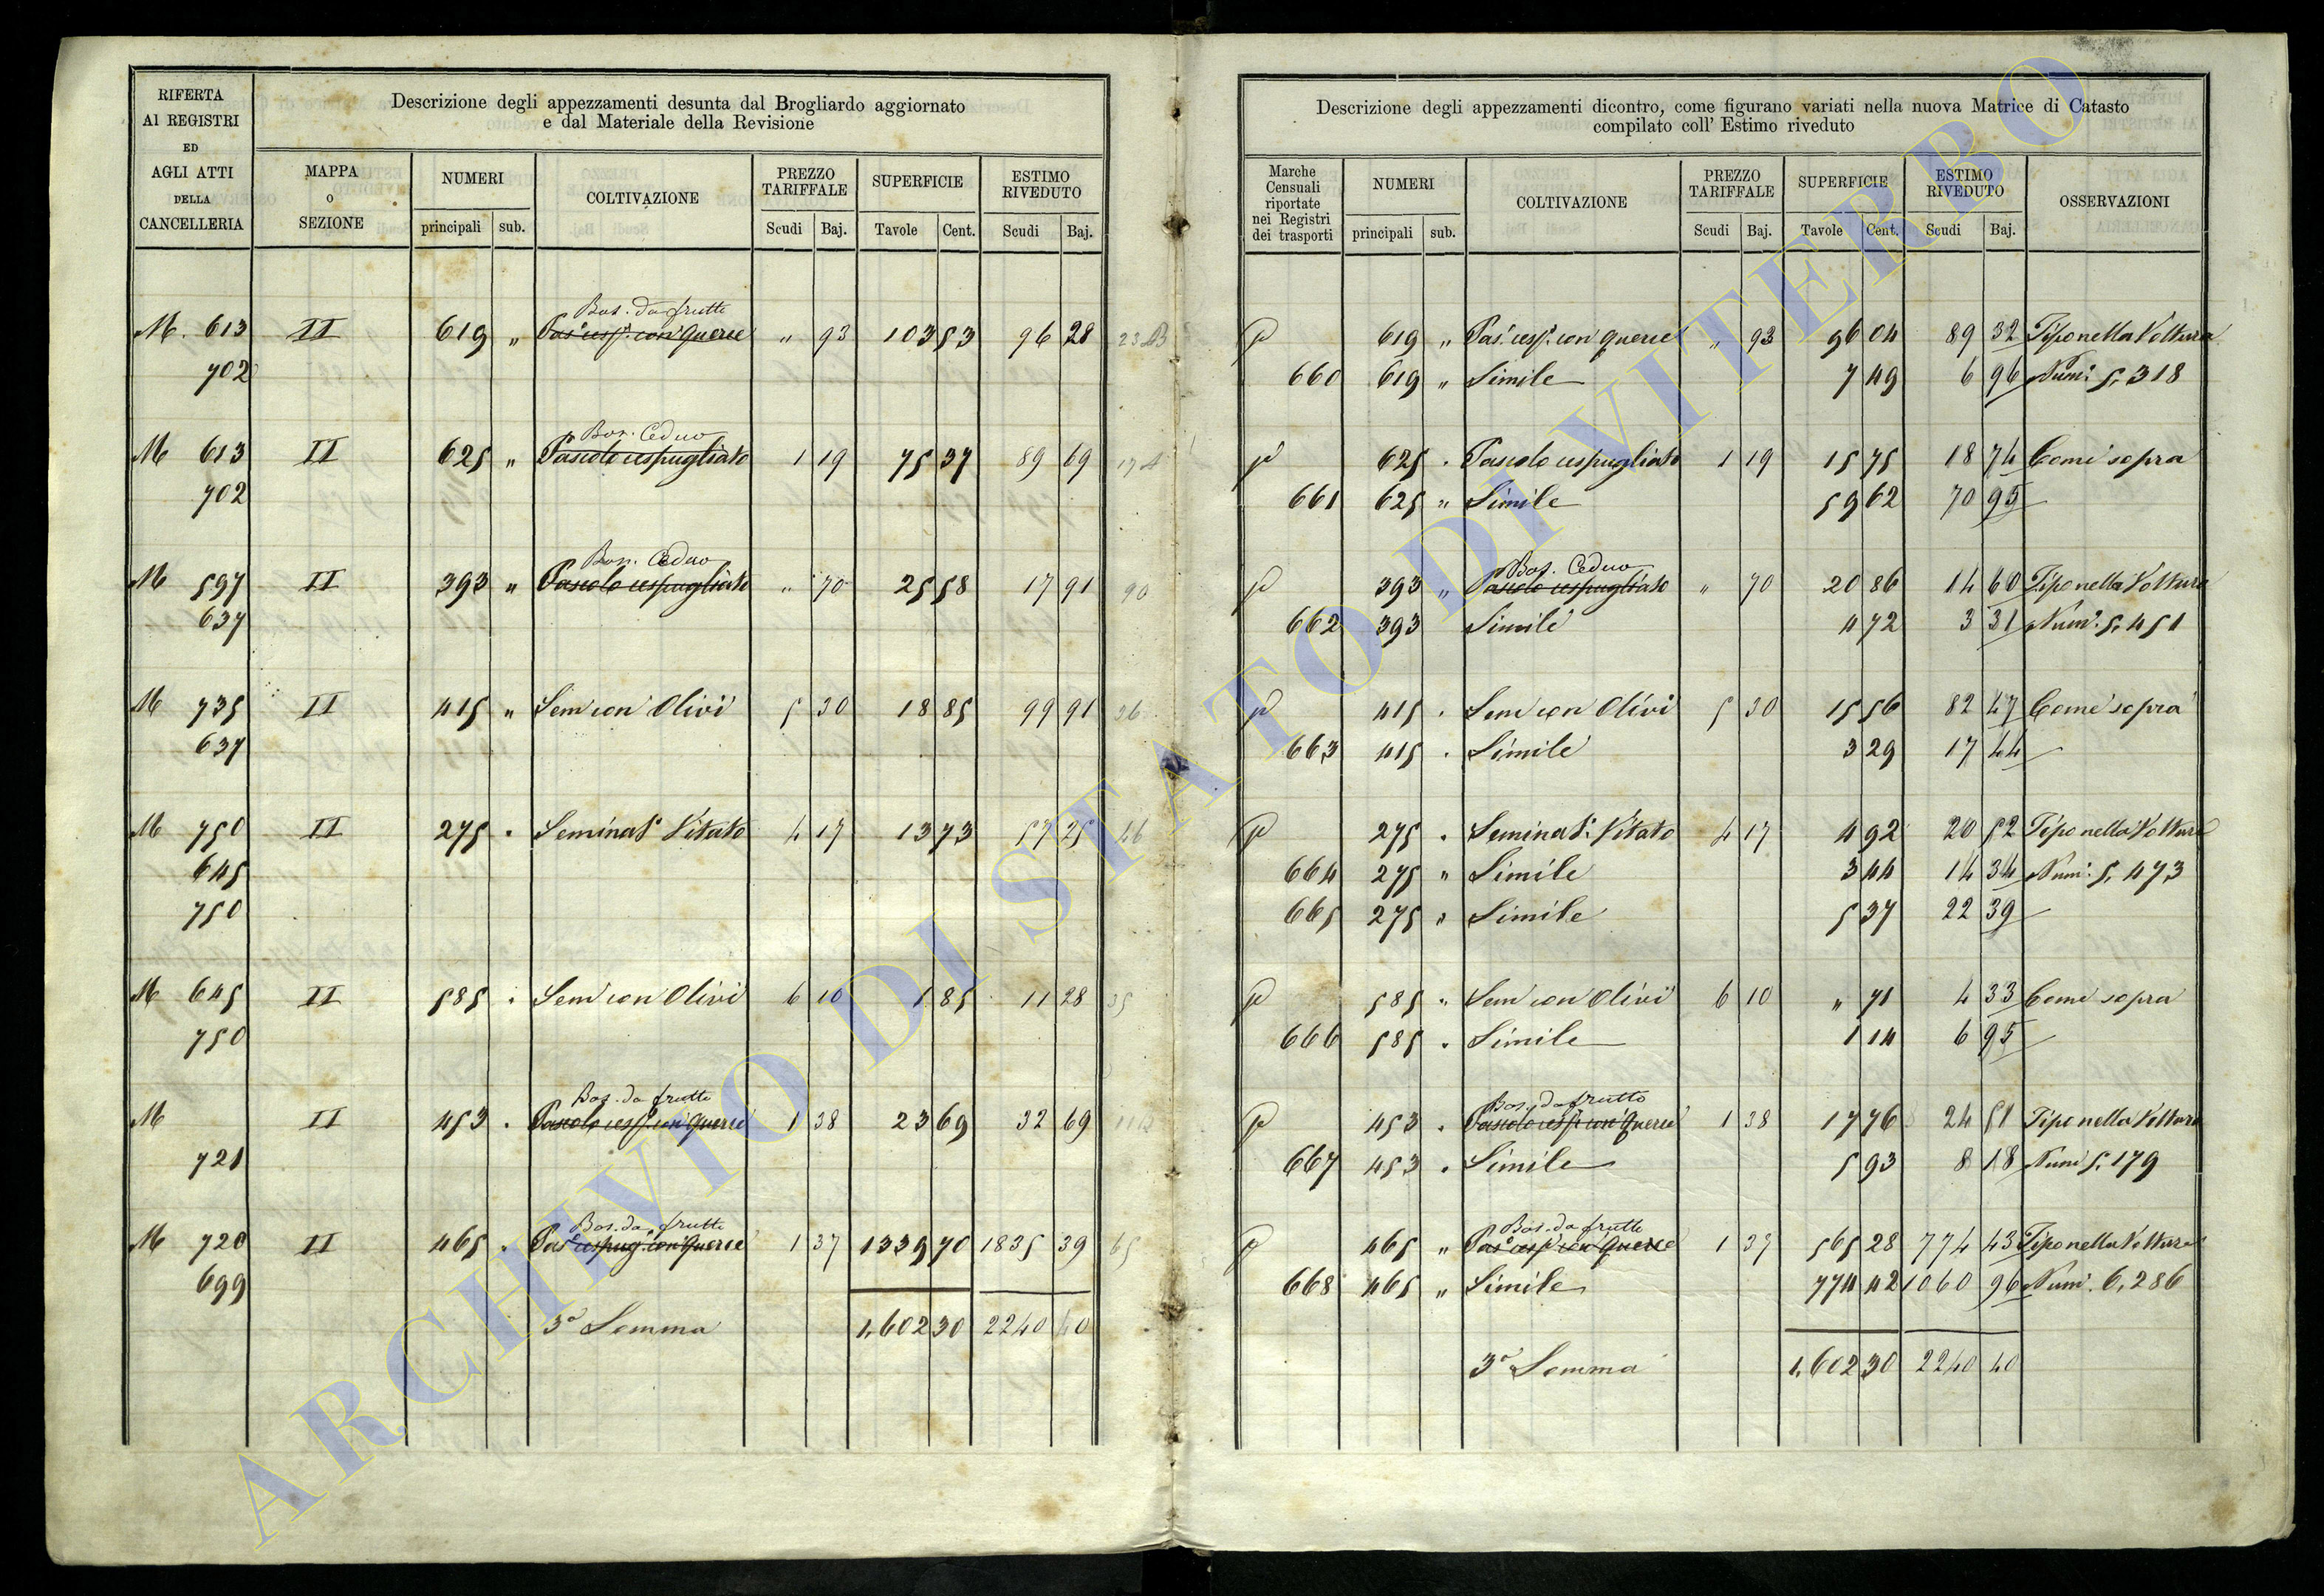 RIFERTA
AI REGISTRI
ED
AGLI ATTI
DELLA
CANCELLERIA
Descrizione degli appezzamenti desunta dal Brogliardo aggiornato
e dal Materiale della Revisione
MAPPA
O
SEZIONE
NUMERI
principali sub.
COLTIVAZIONE
PREZZO
TARIFFALE
Scudi Baj.
SUPERFICIE
Tavole Cent.
ESTIMO
RIVEDUTO
Scudi Baj.
Bos. da frutto
M. 613 II 619 " Pas. cesp. con querce " 93 103 53 96 28 23 AB
702
Bos. Ceduo
M 613 II 625 " Pascolo cespugliato 1 19 75 37 89 69 17 A
702
Bos. Ceduo
M 597 II 393 " Pascolo cespugliato " 70 25 58 17 91 90
637
M 735 II 415 " Sem con Olivi 5 30 18 85 99 91 36
637
M 750 II 275 " Seminat. Vitato 4 17 13 73 57 25 46
645
750
M 645 II 585 " Sem con Olivi 6 10 1 85 11 28 35
750
Bos. da frutto
M II 453 " Pascolo cesp. con querce 1 38 23 69 32 69
721
Bos. da frutto
M 720 II 465 " Pas. cespug. con querce 1 37 1339 70 1835 39 65
699
3a Somma 1,602 30 2240 40
Descrizione degli appezzamenti dicontro, come figurano variati nella nuova Matrice di Catasto
compilato coll' Estimo riveduto
Marche
Censuali
riportate
nei Registri
dei trasporti
NUMERI
principali sub.
COLTIVAZIONE
PREZZO
TARIFFALE
Scudi Baj.
SUPERFICIE
Tavole Cent.
ESTIMO
RIVEDUTO
Scudi Baj.
OSSERVAZIONI
p 619 " Pas. cesp. con querce " 93 96 04 89 32 Tipo nella Voltura
660 619 " Simile 7 49 6 96 Num. 5,318
p 625 " Pascolo cespugliato 1 19 15 75 18 74 Come sopra
661 625 " Simile 59 62 70 95
Bos. Ceduo
p 393 " Pascolo cespugliato " 70 20 86 14 60 Tipo nella Voltura
662 393 Simile 4 72 3 31 Num. 5,451
p 415 " Sem con Olivi 5 30 15 56 82 47 Come sopra
663 415 " Simile 3 29 17 44
p 275 " Seminat. Vitato 4 17 4 92 20 52 Tipo nella Voltura
664 275 " Simile 3 44 14 34 Num. 5,473
665 275 " Simile 5 37 22 39
p 585 " Sem con Olivi 6 10 " 71 4 33 Come sopra
666 585 " Simile 1 14 6 95
Bos. da frutto
p 453 " Pascolo cesp. con querce 1 38 17 76 24 51 Tipo nella Voltura
667 453 " Simile 5 93 8 18 Num 5,179
Bos. da frutto
p 465 " Pas. cesp. con querce 1 37 565 28 774 43 Tipo nella Voltura
668 465 " Simile 774 42 1060 96 Num. 6,286
3a Somma 1,602 30 2240 40
ARCHIVIO DI STATO DI VITERBO